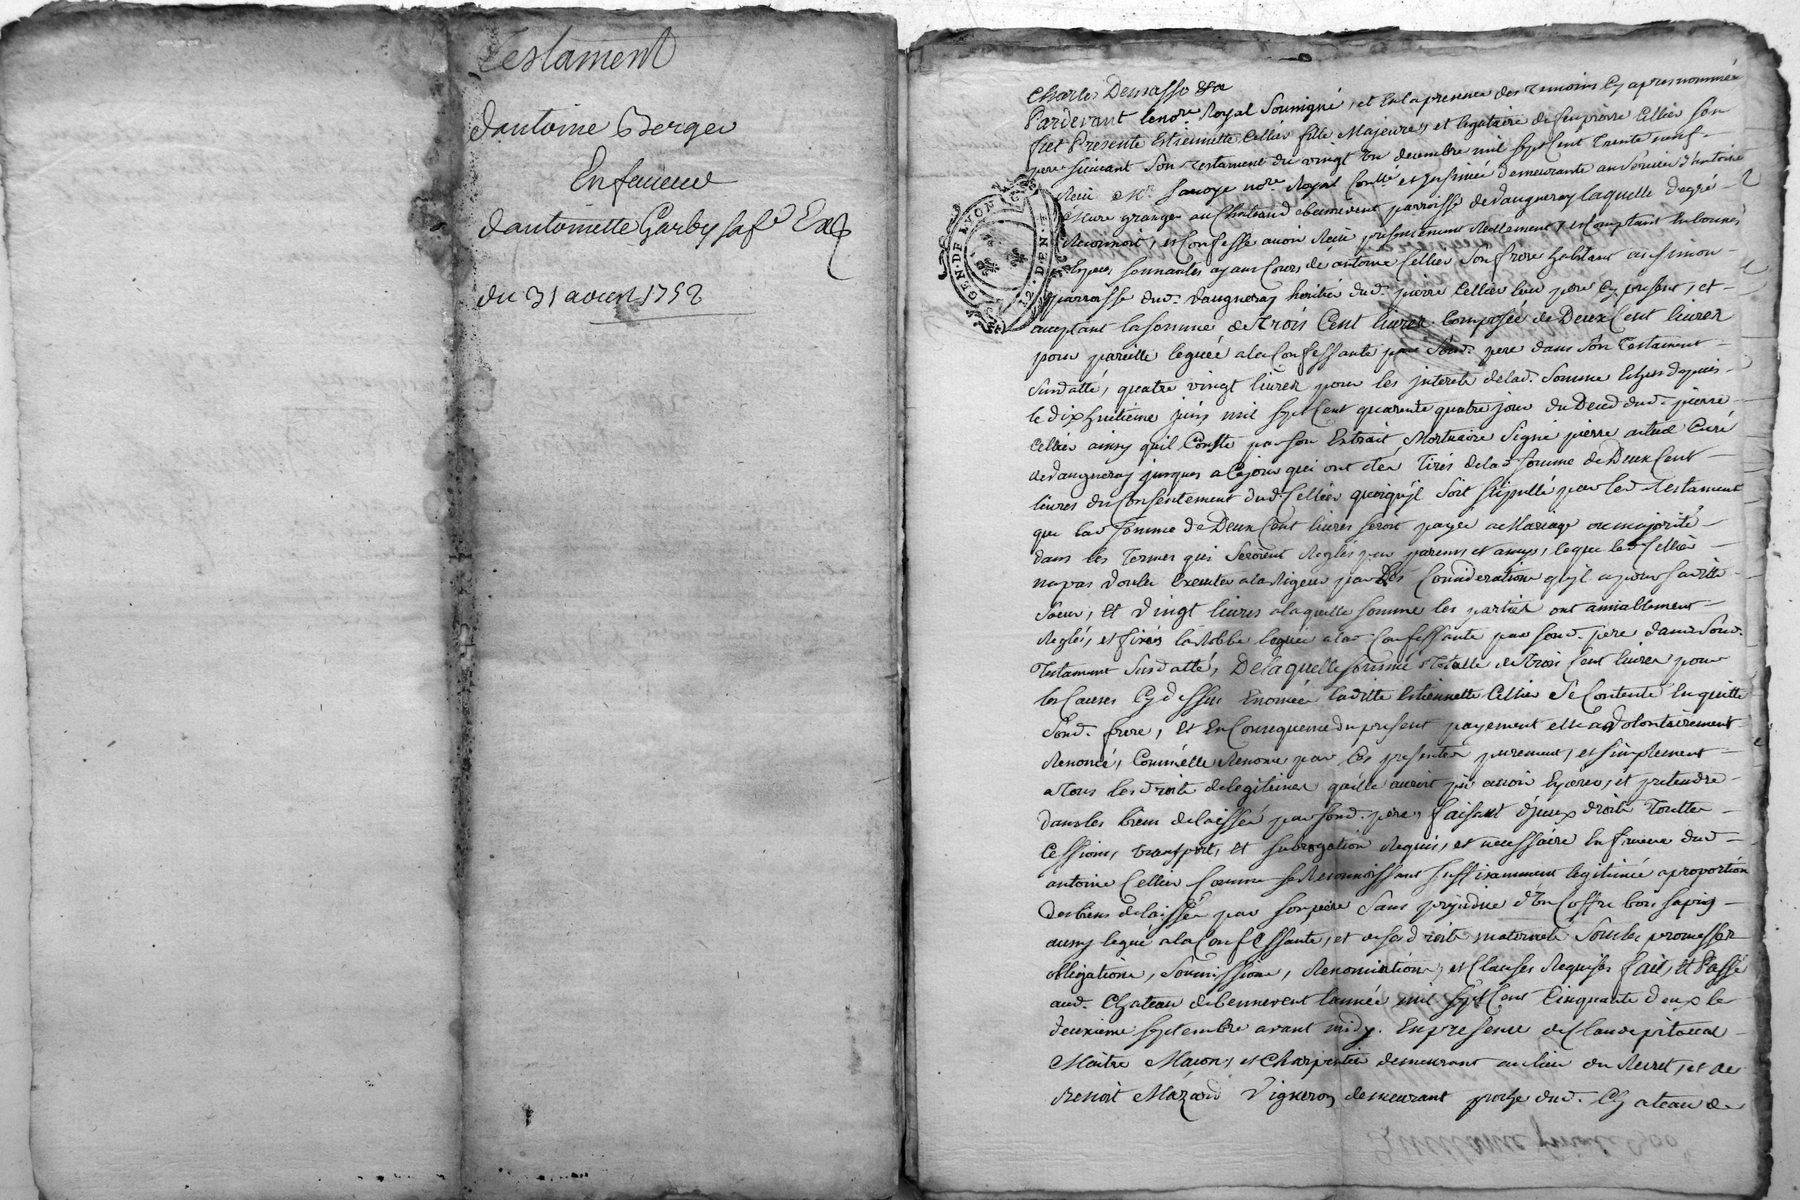 Testament
dantoine Berger
En faveur
dantoinette Garby sa fe
du 31 aoust 1752
GEN. DE LYON
2. DEN.
Charles Demasso
Pardevant le nore. Royal Soussigné, et En la presence des temoins Cy apres nommés
fut Presente Estiennette Cellier fille Majeure, et legataire de feu pierre Cellier Son
pere suivant Son Testament du vingt un decembre mil sept Cent Trente neuf
Receu Mr. nore. Royal et Insinué demeurante au Service d'antoine
granger au Chateau de bennevent parroisse de Vaugneray laquelle de gré
Reconnoit, et Confesse avoir Receu presentement Reellement, et Comptant En bonnes
Especes Sonnantes ayant Cours de antoine Cellier Son frere habitant au Simon
parroisse dud. Vaugneray heritier dud. pierre Cellier leur pere Cy present, et
acceptant la Somme de Trois Cent livres Composée de Deux Cent livres
pour pareille leguée a la Confessante par Sond. pere dans Son Testament
Susdatté, quatre vingt livres pour les jnterets de lad. Somme Echus depuis
le dix huitieme juin mil sept Cent quarente quatre jour du Deces dud. pierre
Cellier ainsy quil Conste par Son Extrait Mortuaire Signé pierre Curé
de Vaugneray jusques a Ce jour qui ont eté Tirés de lad. Somme de Deux Cent
livres du Consentement dud. Cellier quoiquil Soit Stipullé par led. Testament
que lad. Somme de Deux Cent livres Seroit payée a Mariage ou majorité
dans les Termes qui Seroient Reglés par parens et amys, le que led. Cellier
na pas voulu Executer a la Rigeur par Des Considerations quil a pour Sa ditte
Soeur, Et Vingt livres a laquelle Somme les parties ont amiablement
Reglés, et fixés la Robbe leguée a la Confessante par Sond. pere dans Sond.
Testament Susdatté, De laquelle Somme Totalle de Trois Cent livres pour
les Causes Cy dessus Enoncées laditte Estiennette Cellier Se Contente En quitte
Sond. frere, Et En Consequence du present payement elle a volontairement
Renoncé, Comme elle Renonce par Ces presentes purement, et Simplement
a Tous les droits de legitimes quelle auroit pû avoir Esperer, et pretendre
dans les biens delaissés par Sond. pere, faisant d'jceux droits Toutte
Cessions, transport, Et Subrogation Requis, et necessaire En faveur dud.
antoine Cellier Comme Se Reconnoissant Suffisamment legitimée a proportion
des biens delaissés par Son pere Sans prejudice d'Un Coffre bois sapin
aussy legué a la Confessante, et de Ses droits maternels Sous les promesses
obligations, Soumissions, Renonciations, et Clauses Requises fait, Et Passé
aud. Chateau de bennevent lannée mil sept Cent Cinquante deux le
deuxieme Septembre avant midy. En presence de Claude pitaval
Maitre Maçon, et Charpentier demeurant au lieu du Recret, et de
Benoit Mazard Vigneron demeurant proche dud. Chateau de